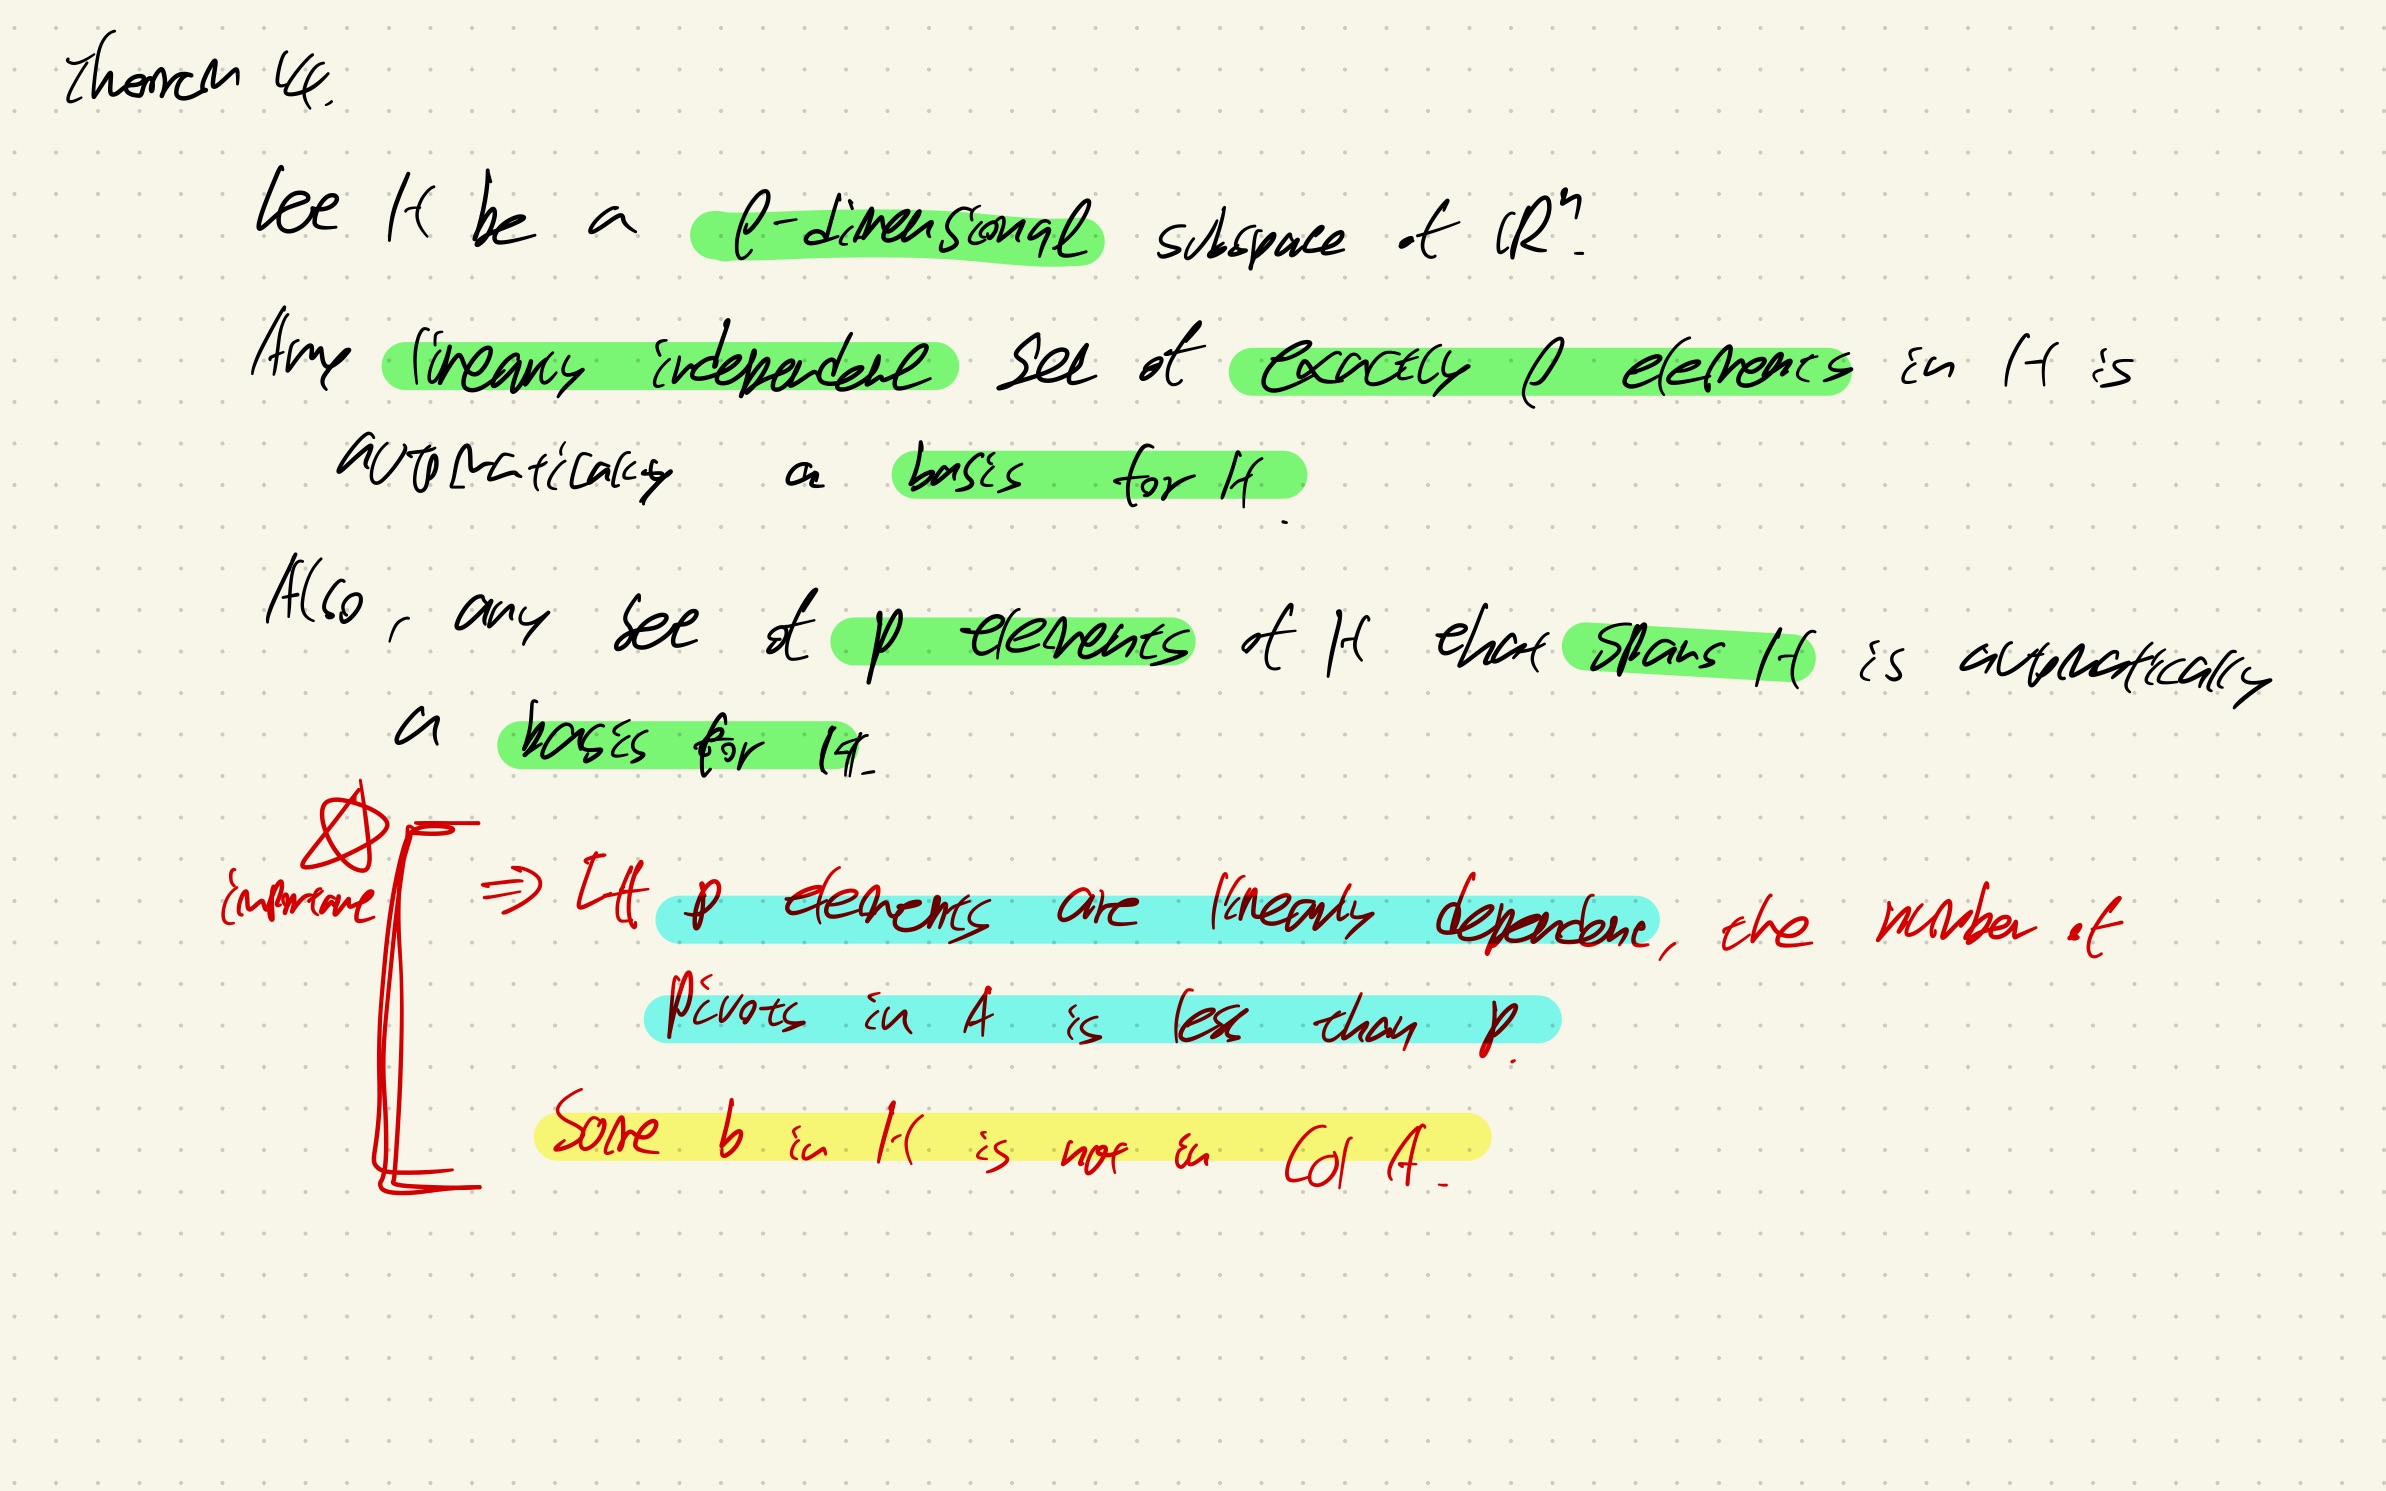 Theorem 4.
Let H be a p-dimensional subspace of ℝⁿ.
Any linearly independent set of exactly p elements in H is
automatically a basis for H.
Also, any set of p elements of H that spans H is automatically
a basis for H.
important
⇒ If p elements are linearly dependent, the number of
pivots in A is less than p.
Some b in H is not in Col A.